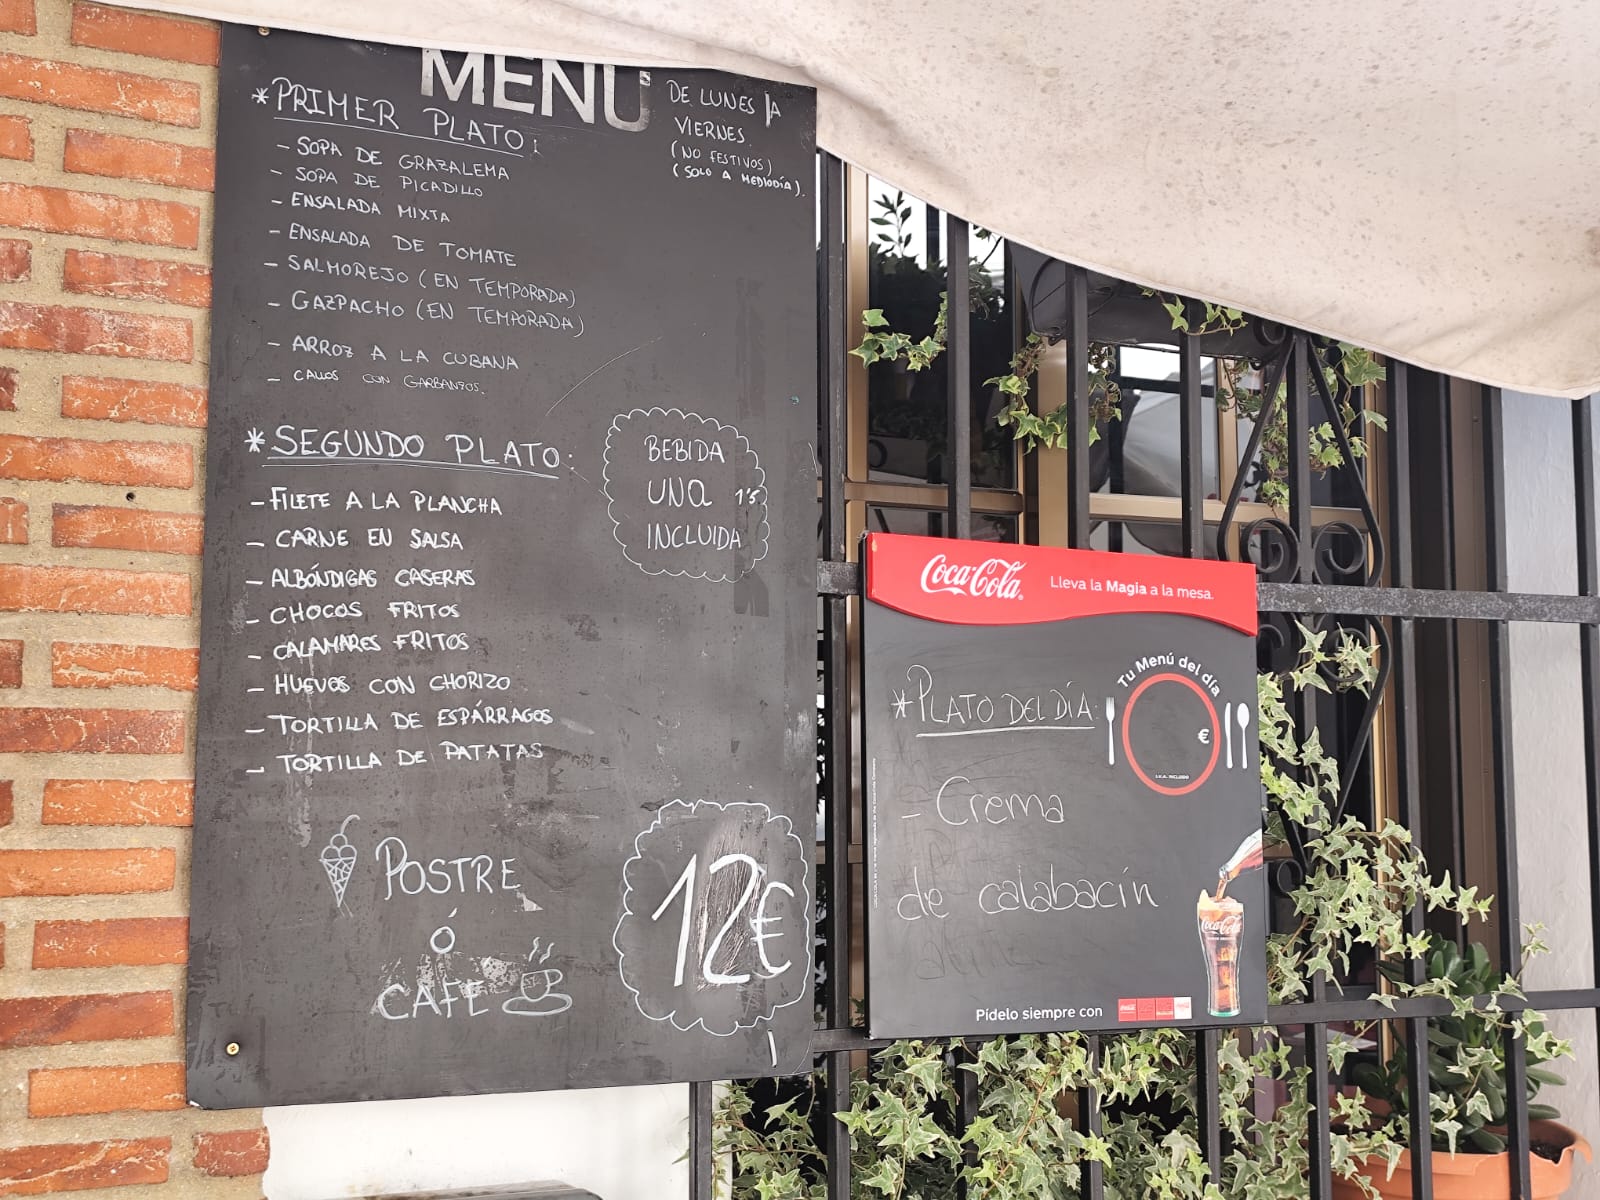 MENÚ
DE LUNES A
VIERNES
(NO FESTIVOS)
(SOLO A MEDIODÍA).
*PRIMER PLATO:
- SOPA DE GRAZALEMA
- SOPA DE PICADILLO
- ENSALADA MIXTA
- ENSALADA DE TOMATE
- SALMOREJO (EN TEMPORADA)
- GAZPACHO (EN TEMPORADA)
- ARROZ A LA CUBANA
- CALLOS CON GARBANZOS.
*SEGUNDO PLATO:
- FILETE A LA PLANCHA
- CARNE EN SALSA
- ALBÓNDIGAS CASERAS
- CHOCOS FRITOS
- CALAMARES FRITOS
- HUEVOS CON CHORIZO
- TORTILLA DE ESPÁRRAGOS
- TORTILLA DE PATATAS
BEBIDA
UNA 1'5
INCLUIDA
POSTRE
Ó
CAFE
12€
Coca-Cola
Lleva la Magia a la mesa.
Tu Menú del día
€
I.V.A. INCLUIDO
*PLATO DEL DÍA:
- Crema
de calabacín
Coca-Cola
Pídelo siempre con